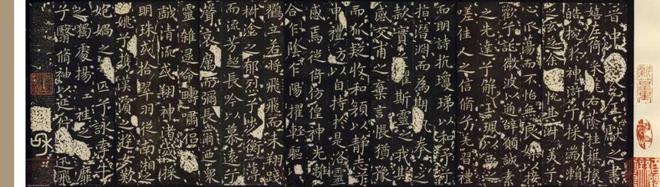 晉中之書
嬉左倚采旄右蔭桂旗攘
皓捥於神滸兮採湍瀨
之玄芝余悅其淑美兮
心而不怡無良媒以接
歡兮託微波以通辭願誠素
之先達兮解玉珮以要之
嗟佳人之信脩兮羌習禮
而明詩抗瓊珶以和予兮
指潛淵而為期執拳拳之
款實兮懼斯靈之我欺
感交甫之言悵猶豫
而狐疑收和顏以靜志兮
申禮防以自持於是洛靈
感焉徙倚仿偟神光離
合乍陰乍陽擢輕軀以
鶴立若將飛而未翔踐
椒塗之郁烈兮步衡薄
而流芳超長吟以慕遠兮
聲哀厲而彌長爾乃衆
靈雜遝命疇嘯侶或
戲清流或翔神渚或採
明珠或拾翠羽從南湘之
二姚兮攜漢濱之游女歎
匏媧之無匹兮詠牽牛
之獨處揚輕袿之猗靡
兮翳脩袖以延佇體迅飛